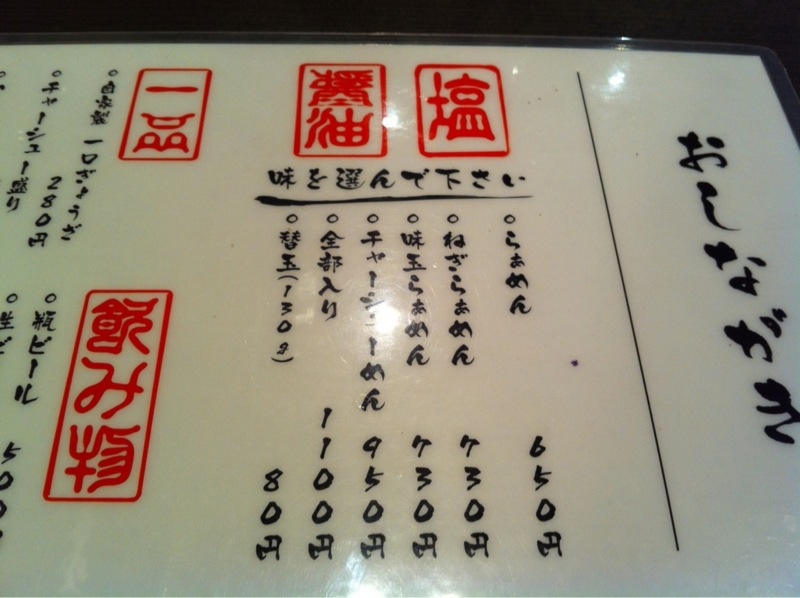 おしながき
塩
醤油
味を選んで下さい
○らぁめん 650円
○ねぎらぁめん 730円
○味玉らぁめん 730円
○チャーシューめん 950円
○全部入り 1100円
○替玉(130g) 80円
一品
○自家製 一口ぎょうざ
○チャーシュー盛り 280円
飲み物
○瓶ビール 500